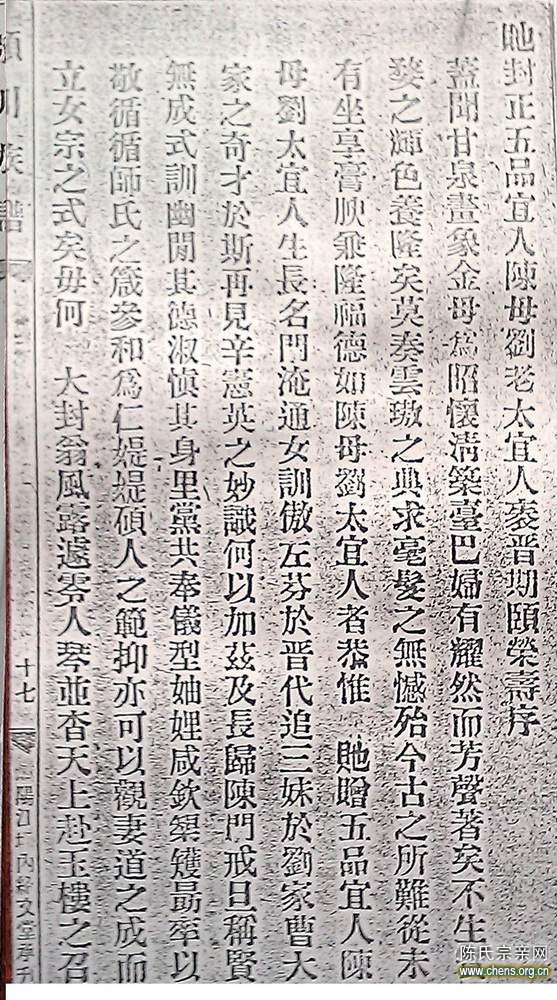 貤封正五品宜人陳母劉老太宜人袠晋期頤榮壽序
蓋聞甘泉畫象金母爲昭懷淸築臺巴婦有耀然而芳聲著矣不生
婺之輝色養隆矣莫奏雲璈之典求毫髮之無憾殆今古之所難從未
有坐享膏腴乘隆福德如陳母劉太宜人者恭惟 貤贈五品宜人陳
母劉太宜人生長名門淹通女訓傲左芬於晋代追三妹於劉家曹大
家之奇才於斯再見辛憲英之妙識何以加茲及長歸陳門戒旦稱賢
無成式訓幽閒其德淑愼其身里黨共奉儀型妯娌咸欽榘矱勗率以
敬循循師氏之箴參和爲仁媞媞碩人之範抑亦可以觀妻道之成而
立女宗之式矣毋何 大封翁風露遽零人琴並杳天上赴玉樓之召
川族譜
十七
內 文堂承刊
陈氏宗亲网
www.chens.org.cn